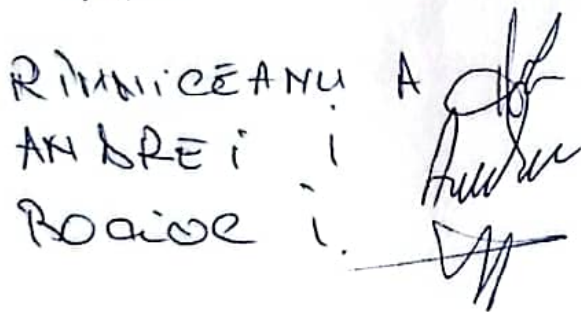 RÎMNICEANU A
ANDREI i
BOCIOC i.